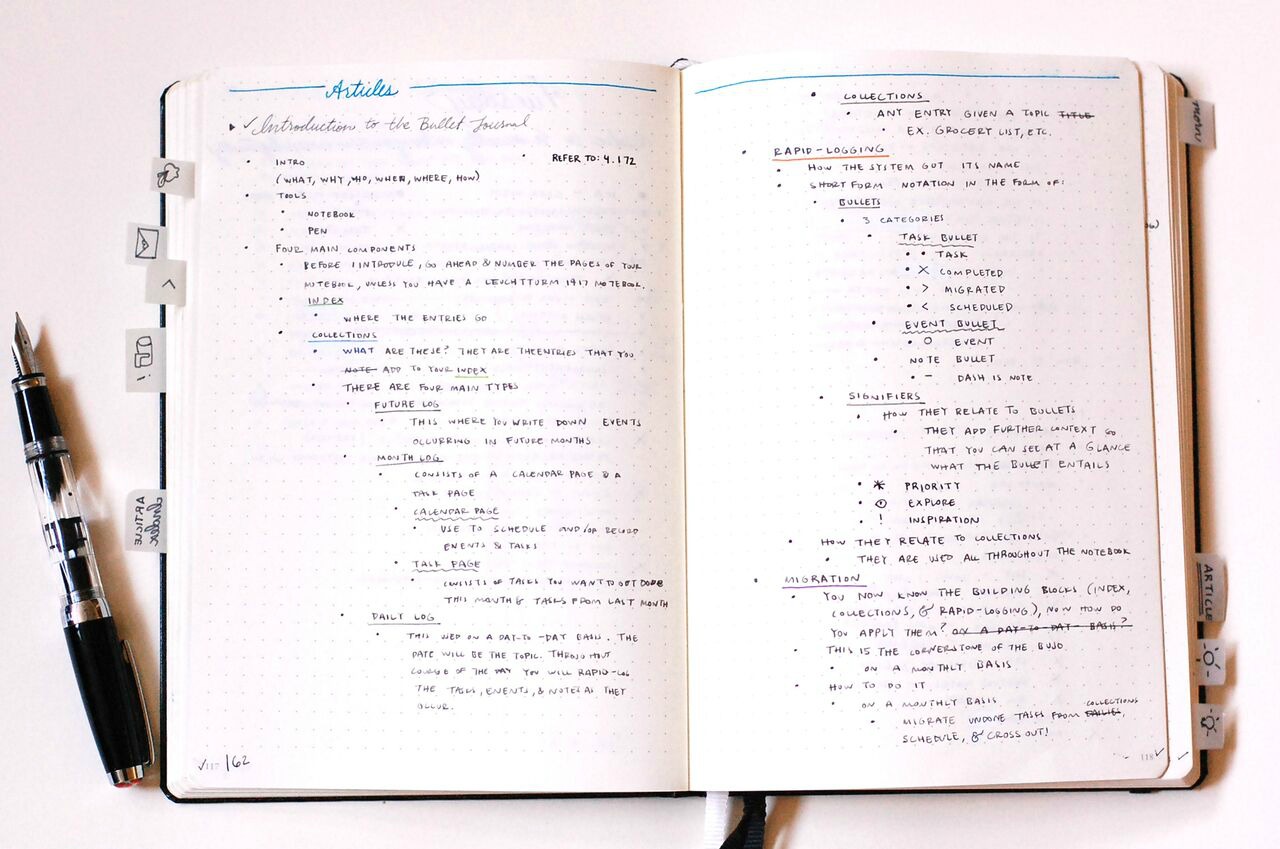 Articles
✓ Introduction to the Bullet Journal
• INTRO
REFER TO: 4.172
(WHAT, WHY, WHO, WHEN, WHERE, HOW)
• TOOLS
• NOTEBOOK
• PEN
• FOUR MAIN COMPONENTS
• BEFORE I INTRODUCE, GO AHEAD & NUMBER THE PAGES OF YOUR
NOTEBOOK, UNLESS YOU HAVE A LEUCHTTURM 1917 NOTEBOOK.
• INDEX
• WHERE THE ENTRIES GO
• COLLECTIONS
• WHAT ARE THESE? THEY ARE THE ENTRIES THAT YOU
NOTE ADD TO YOUR INDEX
• THERE ARE FOUR MAIN TYPES
• FUTURE LOG
• THIS WHERE YOU WRITE DOWN EVENTS
OCCURRING IN FUTURE MONTHS
• MONTH LOG
• CONSISTS OF A CALENDAR PAGE & A
TASK PAGE
• CALENDAR PAGE
• USE TO SCHEDULE AND/OR RECORD
EVENTS & TASKS
• TASK PAGE
• CONSISTS OF TASKS YOU WANT TO GET DONE
THIS MONTH & TASKS FROM LAST MONTH
• DAILY LOG
• THIS USED ON A DAY-TO-DAY BASIS. THE
DATE WILL BE THE TOPIC. THROUGHOUT
COURSE OF THE DAY YOU WILL RAPID-LOG
THE TASKS, EVENTS, & NOTES AS THEY
OCCUR.
✓ 117 /62
• COLLECTIONS
• ANY ENTRY GIVEN A TOPIC TITLE
• EX. GROCERY LIST, ETC.
• RAPID-LOGGING
• HOW THE SYSTEM GOT ITS NAME
• SHORT FORM NOTATION IN THE FORM OF:
• BULLETS
• 3 CATEGORIES
• TASK BULLET
• • TASK
• X COMPLETED
• > MIGRATED
• < SCHEDULED
• EVENT BULLET
• O EVENT
• NOTE BULLET
• – DASH IS NOTE
• SIGNIFIERS
• HOW THEY RELATE TO BULLETS
• THEY ADD FURTHER CONTEXT SO
THAT YOU CAN SEE AT A GLANCE
WHAT THE BULLET ENTAILS
• * PRIORITY
• ⊙ EXPLORE
• ! INSPIRATION
• HOW THEY RELATE TO COLLECTIONS
• THEY ARE USED ALL THROUGHOUT THE NOTEBOOK
• MIGRATION
• YOU NOW KNOW THE BUILDING BLOCKS (INDEX,
COLLECTIONS, & RAPID-LOGGING), NOW HOW DO
YOU APPLY THEM? ON A DAY-TO-DAY BASIS?
• THIS IS THE CORNERSTONE OF THE BUJO.
• ON A MONTHLY BASIS
• HOW TO DO IT
• ON A MONTHLY BASIS
COLLECTIONS
• MIGRATE UNDONE TASKS FROM DAILIES,
SCHEDULE, & CROSS OUT!
118 ✓
ARTICLE
ARTICLE